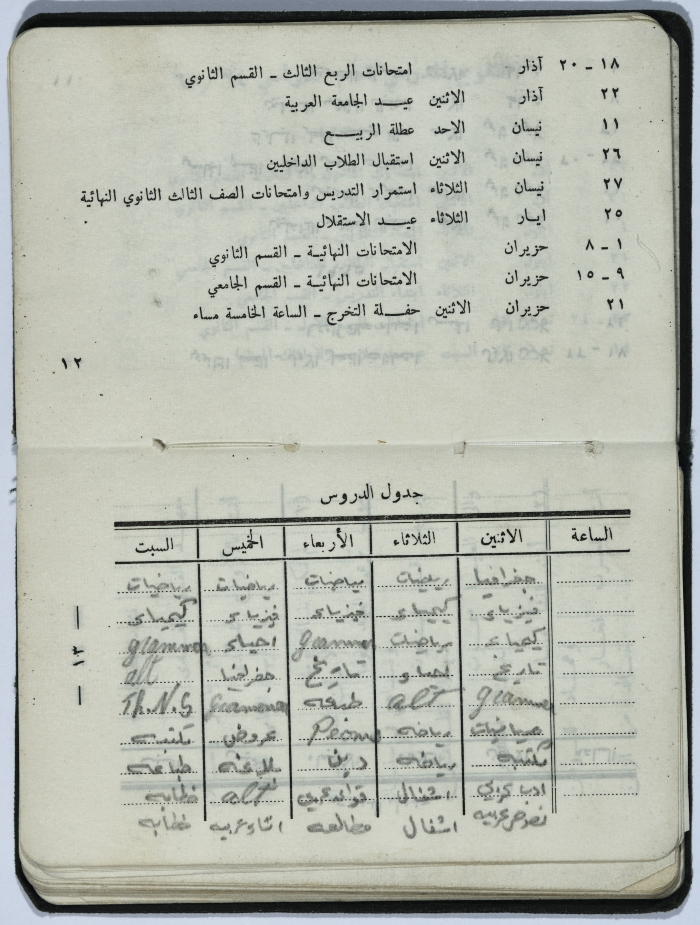 ١٨ - ٢٠ آذار امتحانات الربع الثالث - القسم الثانوي
٢٢ آذار الاثنين عيد الجامعة العربية
١١ نيسان الاحد عطلة الربيع
٢٦ نيسان الاثنين استقبال الطلاب الداخليين
٢٧ نيسان الثلاثاء استمرار التدريس وامتحانات الصف الثالث الثانوي النهائية
٢٥ ايار الثلاثاء عيد الاستقلال
١ - ٨ حزيران الامتحانات النهائية - القسم الثانوي
٩ - ١٥ حزيران الامتحانات النهائية - القسم الجامعي
٢١ حزيران الاثنين حفلة التخرج - الساعة الخامسة مساء
١٢
جدول الدروس
الساعة الاثنين الثلاثاء الأربعاء الخميس السبت
جغرافيا رياضيات رياضيات رياضيات رياضيات
فيزياء كيمياء فيزياء فيزياء كيمياء
كيمياء رياضيات grammer احياء grammer
تاريخ احياء تاريخ جغرافيا alt
grammer alt طباعه grammer Th.N.S
رياضيات رياضه Poems عروض مكتبه
مكتبه رياضه دين طباعه
ادب عربي اشغال قواعد عربي alt خطابه
نصوص عربيه اشغال مطالعه انشاء عربيه خطابه
- ١٣ -